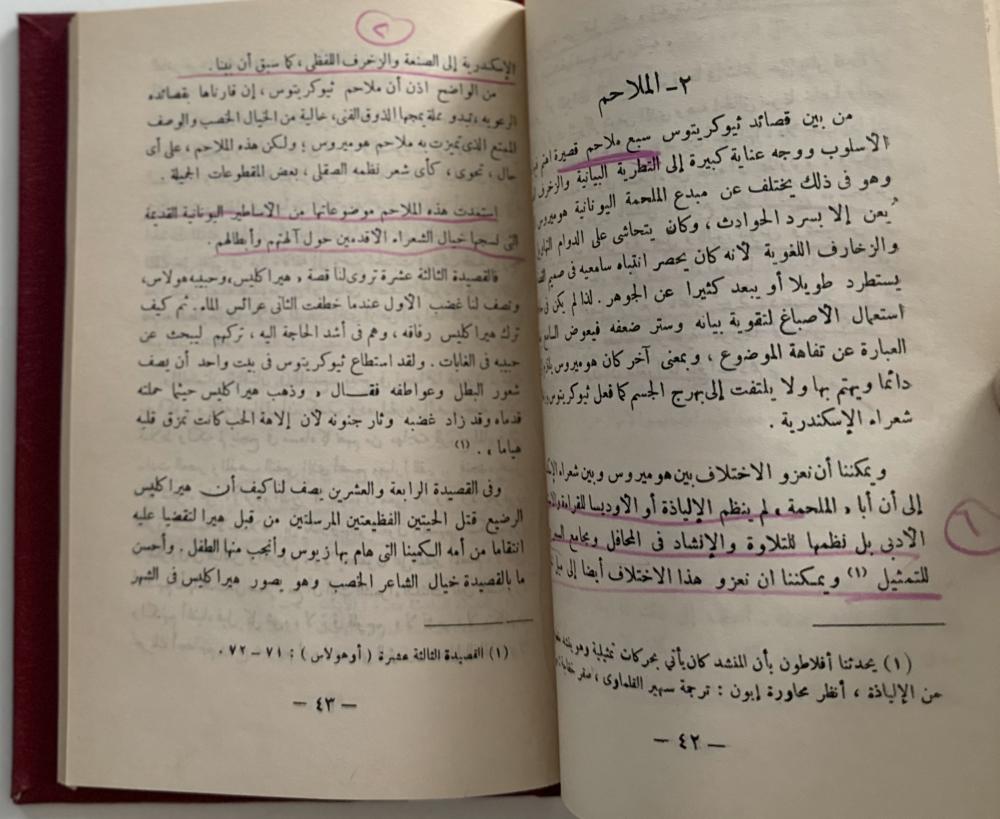 ٢ - الملاحم
من بين قصائد ثيوكريتوس سبع ملاحم قصيرة
الأسلوب ووجه عناية كبيرة إلى التطرية البيانية والزخرف
وهو فى ذلك يختلف عن مبدع الملحمة اليونانية هوميروس
يُعن إلا بسرد الحوادث ، وكان يتحاشى على الدوام
والزخارف اللغوية لأنه كان يحصر انتباه سامعيه فى صميم
يستطرد طويلا أو يبعد كثيرا عن الجوهر . لذا لم يكن فى
استعمال الأصباغ لتقوية بيانه وستر ضعفه فيعوض
العبارة عن تفاهة الموضوع ، وبمعنى آخر كان هوميروس
دائما ويهتم بها ولا يلتفت إلى بهرج الجسم كما فعل ثيوكريتوس
شعراء الإسكندرية .
ويمكننا أن نعزو الاختلاف بين هوميروس وبين شعراء
إلى أن أبا « الملحمة » لم ينظم الإلياذة أو الأوديسا للقراءة
الأدبى بل نظمها للتلاوة والإنشاد فى المحافل ومجامع
للتمثيل (١) ويمكننا ان نعزو هذا الاختلاف أيضا إلى
١
(١) يحدثنا أفلاطون بأن المنشد كان يأتى بحركات تمثيلية وهو
من الإلياذة ، أنظر محاورة إيون : ترجمة سهير القلماوى ، صقر خفاجة
— ٤٢ —
٢
الإسكندرية إلى الصنعة والزخرف اللفظى ، كما سبق أن بينا .
من الواضح اذن أن ملاحم ثيوكريتوس ، إن قارناها بقصائده
الرعويه ، تبدو مملة يمجها الذوق الفنى ، خالية من الخيال الخصب والوصف
الممتع الذى تميزت به ملاحم هوميروس ؛ ولكن هذه الملاحم ، على أى
حال ، تحوى ، كأى شعر نظمه الصقلى ، بعض المقطوعات الجميلة .
استمدت هذه الملاحم موضوعاتها من الأساطير اليونانية القديمة
التى نسجها خيال الشعراء الأقدمين حول آلهتهم وأبطالهم .
فالقصيدة الثالثة عشرة تروى لنا قصة « هيراكليس » وحبيبه هولاس ،
وتصف لنا غضب الأول عندما خطفت الثانى عرائس الماء . ثم كيف
ترك هيراكليس رفاقه ، وهم فى أشد الحاجة اليه ، تركهم ليبحث عن
حبيبه فى الغابات . ولقد استطاع ثيوكريتوس فى بيت واحد أن يصف
شعور البطل وعواطفه فقـــال « وذهب هيراكليس حيثما حملته
قدماه وقد زاد غضبه وثار جنونه لأن إلاهة الحب كانت تمزق قلبه
هياما » . (١)
وفى القصيدة الرابعة والعشرين يصف لنا كيف أن هيراكليس
الرضيع قتل الحيتين الفظيعتين المرسلتين من قبل هيرا لتقضيا عليه
انتقاما من أمه الكمينا التى هام بها زيوس وأنجب منها الطفل . وأحسن
ما بالقصيدة خيال الشاعر الخصب وهو يصور هيراكليس فى الشهر
(١) القصيدة الثالثة عشرة ( أو هولاس ) : ٧١ — ٧٢ .
— ٤٣ —